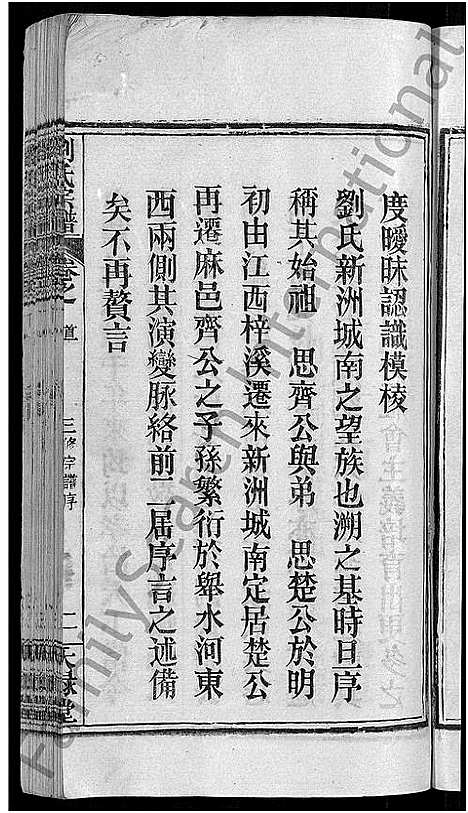 度曖昧認識模棱
劉氏新洲城南之望族也溯之基時旦序
稱其始祖 思齊公與弟 思楚公於明
初由江西梓溪遷來新洲城南定居楚公
再遷麻邑齊公之子孫繁衍於舉水河東
西兩側其演變脉絡前二居序言之述備
矣不再贅言
劉氏宗譜
卷之
首
三修宗譜序
二
天祿堂
FamilySearch International